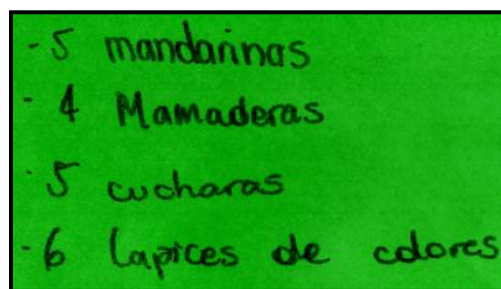 - 5 mandarinas
- 4 Mamaderas
- 5 cucharas
- 6 lapices de colores